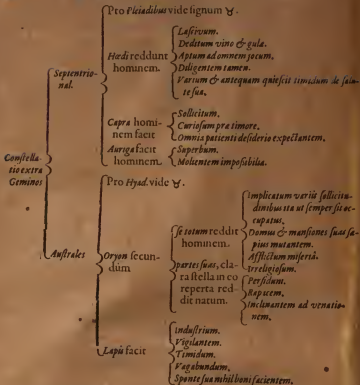 Pro Pleiadibus vide signum ♉.
Lascivum.
Hœdi reddunt
hominem.
Deditum vino & gulæ.
Aptum ad omnem jocum.
Diligentem tamen.
Varium & antequam quiescit timidum de salu-
te sua.
Septentrio-
nal.
Capra homi-
nem facit
Sollicitum.
Curiosum præ timore.
Omnia patienti desiderio expectantem.
Auriga facit
hominem.
Superbum.
Molientem impossibilia.
Constella-
tio extra
Geminos
Pro Hyad. vide ♉.
Australes
Oryon secun-
dùm
se totum reddit
hominem.
Implicatum variis sollicitu-
dinibus ita ut semper sit oc-
cupatus.
Domus & mansiones suas sæ-
pius mutantem.
Afflictum miseriâ.
Irreligiosum.
partes suas, cla-
ra stella in eo
reperta red-
dit natum.
Perfidum.
Rapacem.
Inclinantem ad venatio-
nem.
Lapus facit
Industrium.
Vigilantem.
Timidum.
Vagabundum.
Sponte sua nihil boni facientem.